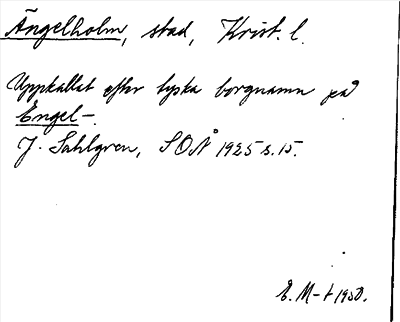 Ängelholm, stad, Krist. l.
Uppkallat efter tyska borgnamn på
Engel-.
J. Sahlgren, SOÅ 1925 s. 15.
E. M-t 1950.